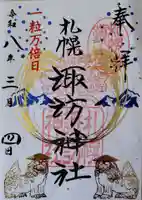 奉拝
札幌
諏訪神社
一粒万倍日
令和八年三月四日